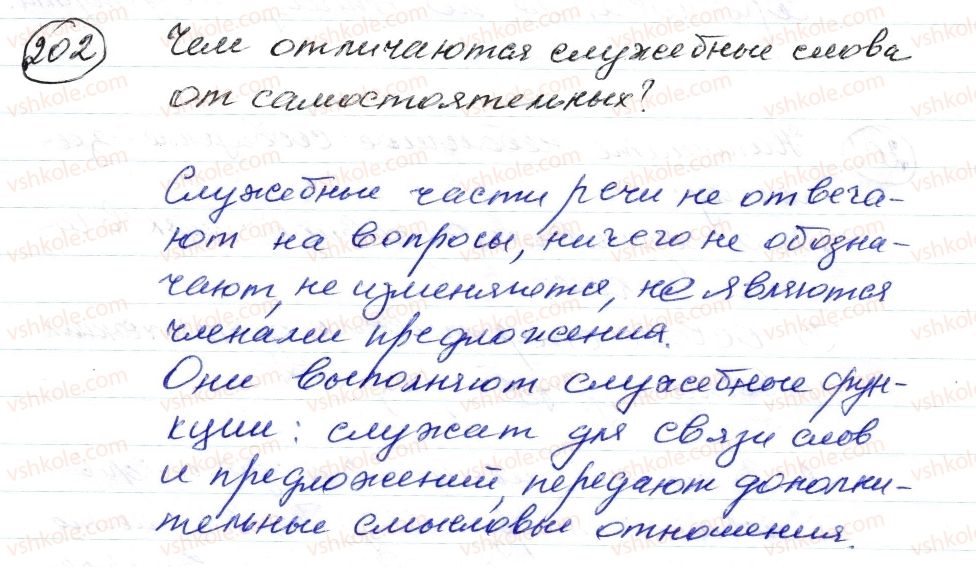 202 Чем отличаются служебные слова
от самостоятельных?
Служебные части речи не отвеча-
ют на вопросы, ничего не обозна-
чают, не изменяются, не являются
членами предложения.
Они выполняют служебные фун-
кции: служат для связи слов
и предложений, передают дополни-
тельные смысловые отношения.